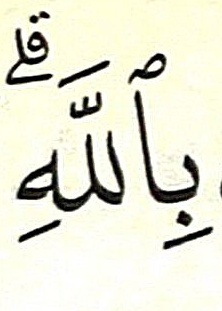 بِٱللَّهِۗ